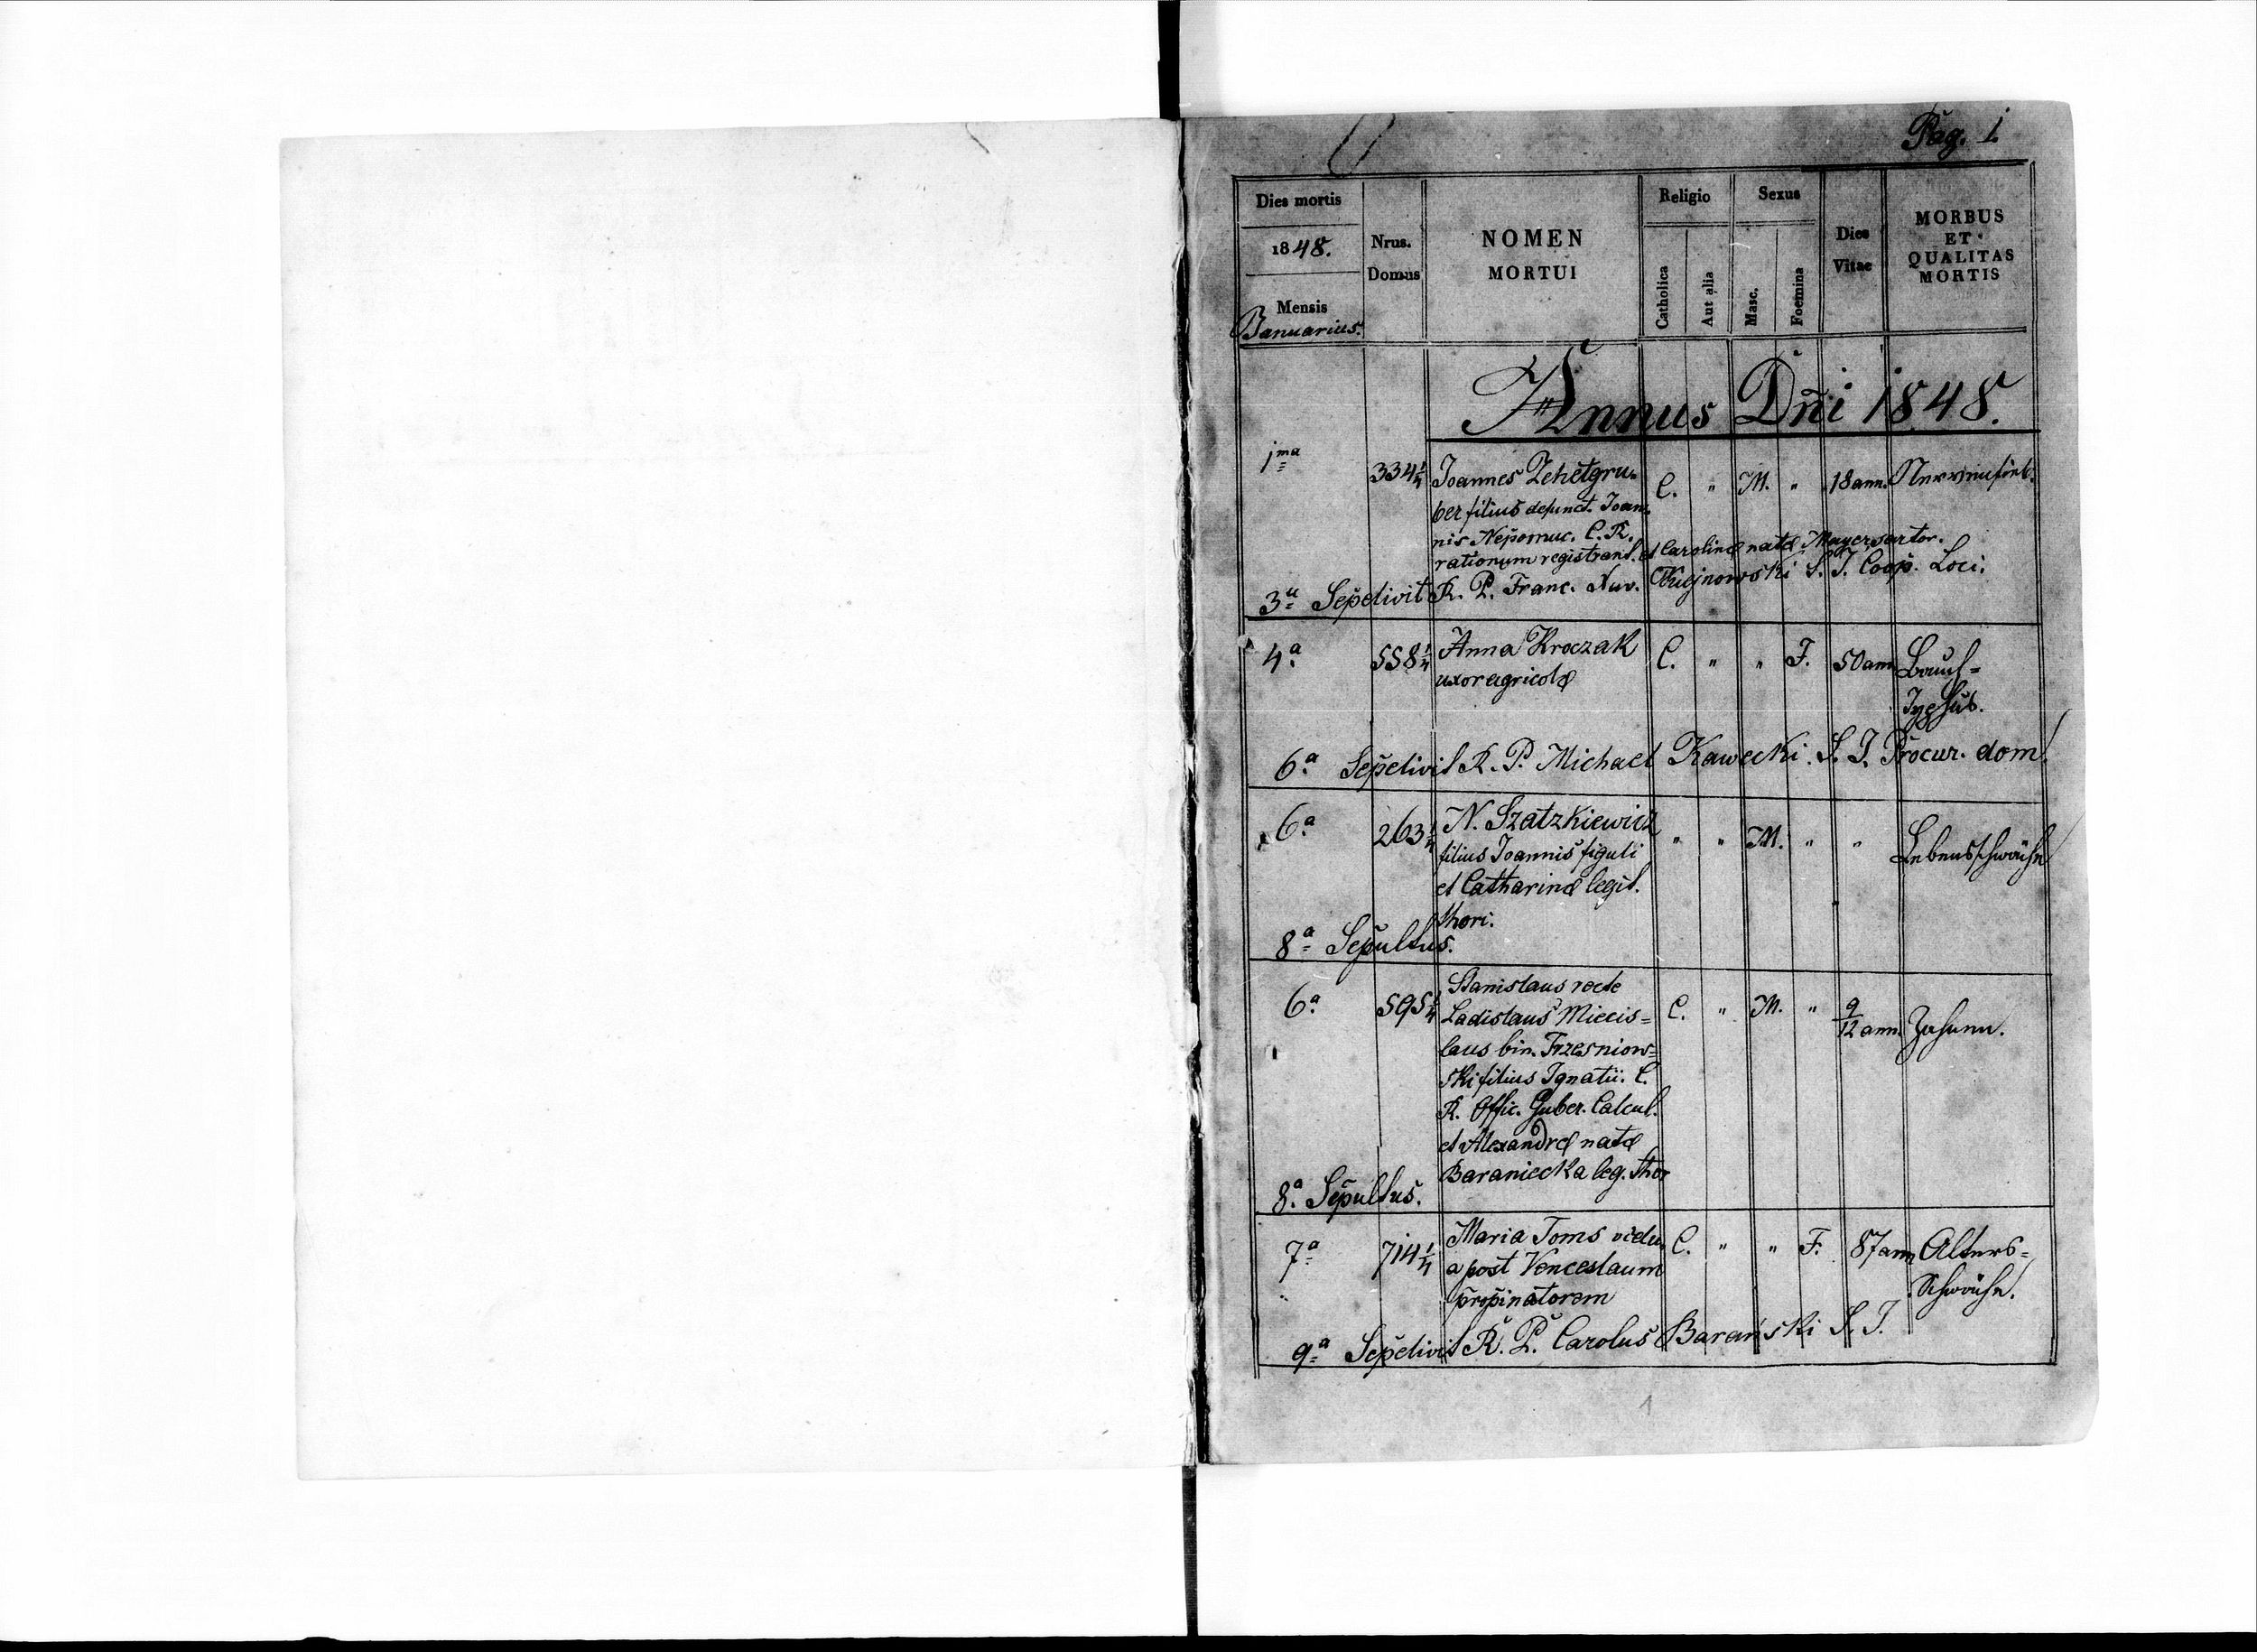 Pag. 1.
Dies mortis
1848.
Mensis
Januarius.
Nrus. Domus
NOMEN MORTUI
Religio
Catholica
Aut alia
Sexus
Masc.
Foemina
Dies Vitae
MORBUS ET QUALITAS MORTIS
Annus Dñi 1848.
1ma 334 1/4 Joannes Zehetgru= C. " M. " 18 ann. Nervenfieb.
ber filius defunct. Joan=
nis Nepomuc. C. R.
rationum registrant. et Carolinæ natæ Mayer
3a Sepelivit R. P. Franc. Xav. S. J. Coop. Loci.
4a 558 1/4 Anna Kroczak C. " " F. 50 ann. Bauch=
uxor agricolæ Typhus.
6a Sepelivit R. P. Michael Kawecki S. J. Procur. dom.
6a 263 1/4 N. Szatzkiewicz " " M. " " Lebensschwäche
filius Joannis figuli
et Catharinæ legit.
thori.
8a Sepultus.
6a 595 1/4 Stanislaus recte C. " M. " 9/12 ann. Zahnen.
Ladislaus Miecis=
laus bin. Trzesniow=
ski filius Ignatii. C.
R. Offic. Guber. Calcul.
et Alexandræ natæ
Baraniecka leg. thor
8a Sepultus.
7a 714 1/4 Maria Toms vidu C. " " F. 87 ann Alters=
a post Venceslaum Schwäche.
propinatorem
9a Sepelivit R. P. Carolus Barański S. J.
1